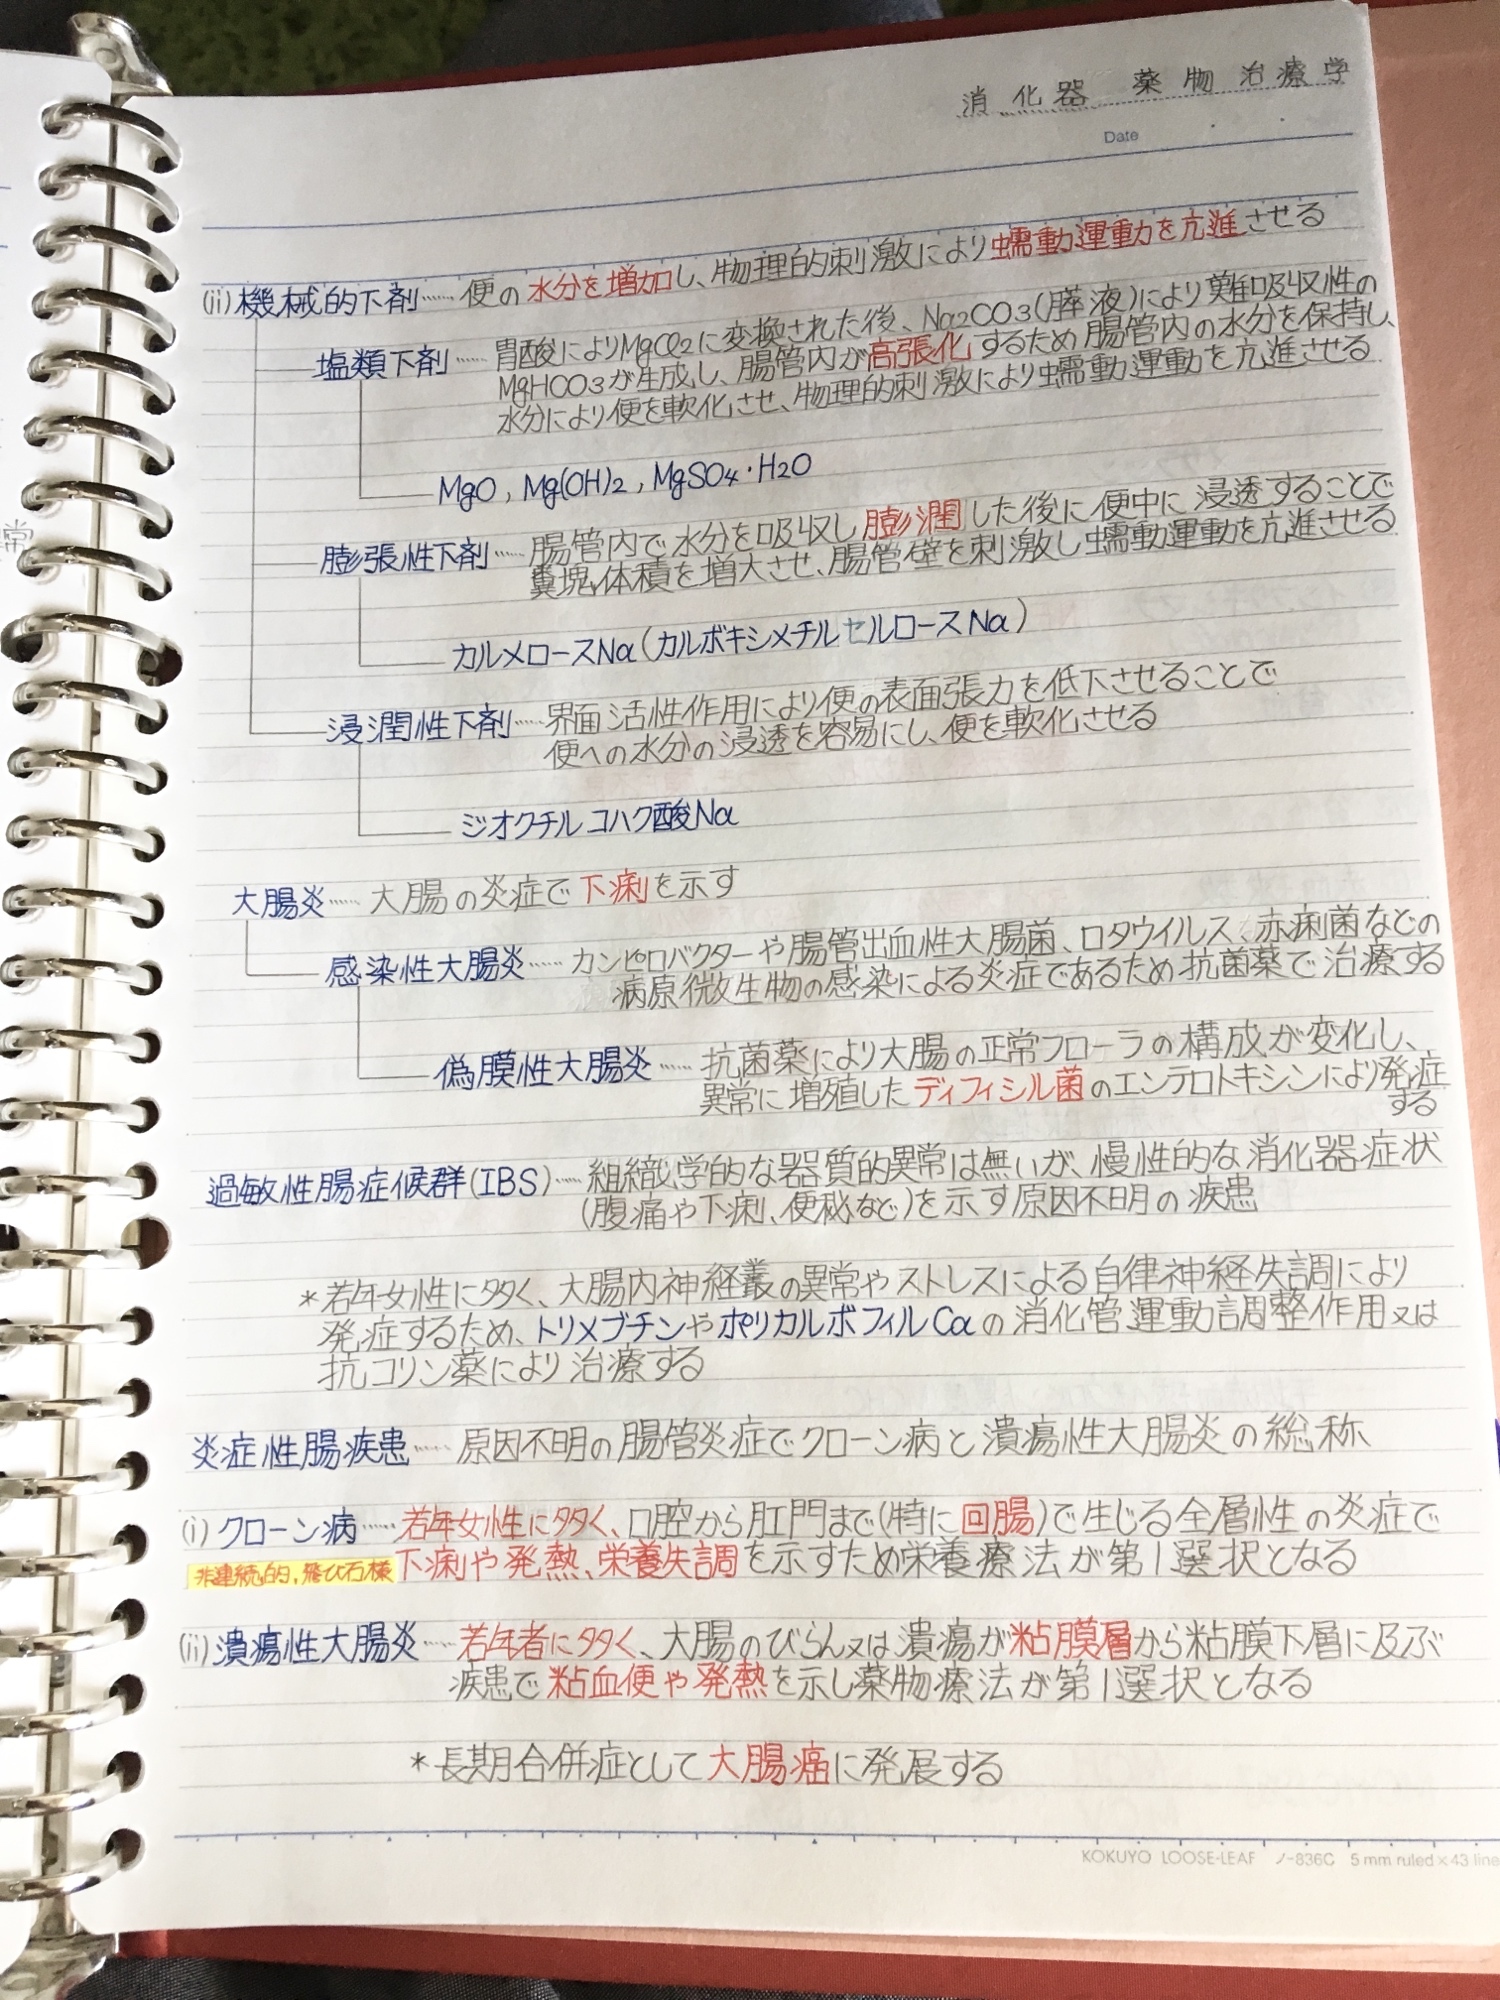 消化器 薬物治療学
Date
(ii)機械的下剤……便の水分を増加し、物理的刺激により蠕動運動を亢進させる
塩類下剤……胃酸によりMgCl2に変換された後、Na2CO3(膵液)により難吸収性の
MgHCO3が生成し、腸管内が高張化するため腸管内の水分を保持し、
水分により便を軟化させ、物理的刺激により蠕動運動を亢進させる
MgO, Mg(OH)2, MgSO4・H2O
膨張性下剤……腸管内で水分を吸収し膨潤した後に便中に浸透することで
糞塊体積を増大させ、腸管壁を刺激し蠕動運動を亢進させる
カルメロースNa(カルボキシメチルセルロースNa)
浸潤性下剤……界面活性作用により便の表面張力を低下させることで
便への水分の浸透を容易にし、便を軟化させる
ジオクチルコハク酸Na
大腸炎……大腸の炎症で下痢を示す
感染性大腸炎……カンピロバクターや腸管出血性大腸菌、ロタウイルス、赤痢菌などの
病原微生物の感染による炎症であるため抗菌薬で治療する
偽膜性大腸炎……抗菌薬により大腸の正常フローラの構成が変化し、
異常に増殖したディフィシル菌のエンテロトキシンにより発症
する
過敏性腸症候群(IBS)……組織学的な器質的異常は無いが、慢性的な消化器症状
(腹痛や下痢、便秘など)を示す原因不明の疾患
*若年女性に多く、大腸内神経叢の異常やストレスによる自律神経失調により
発症するため、トリメブチンやポリカルボフィルCaの消化管運動調整作用又は
抗コリン薬により治療する
炎症性腸疾患……原因不明の腸管炎症でクローン病と潰瘍性大腸炎の総称
(i)クローン病……若年女性に多く、口腔から肛門まで(特に回腸)で生じる全層性の炎症で
非連続的,飛び石様 下痢や発熱、栄養失調を示すため栄養療法が第1選択となる
(ii)潰瘍性大腸炎……若年者に多く、大腸のびらん又は潰瘍が粘膜層から粘膜下層に及ぶ
疾患で粘血便や発熱を示し薬物療法が第1選択となる
*長期合併症として大腸癌に発展する
KOKUYO LOOSE-LEAF ノ-836C 5mm ruled×43 line
常